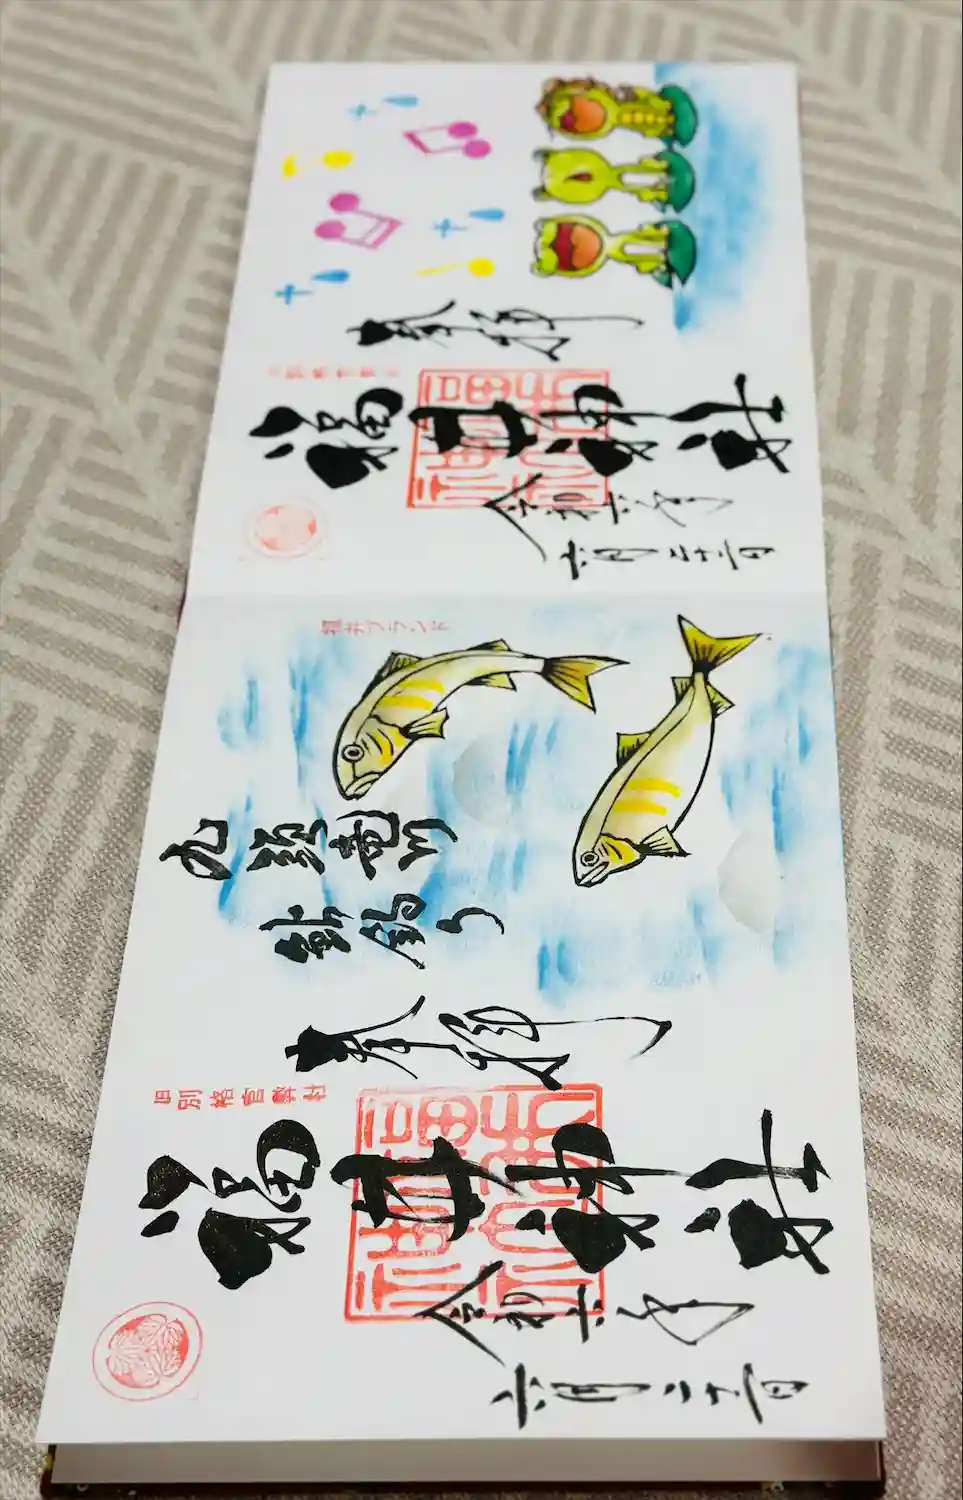 奉拝
旧別格官幣社
福井神社
令和六年
六月二十二日
福井ブランド
九頭竜川
鮎釣り
奉拝
旧別格官幣社
福井神社
令和六年
六月二十二日